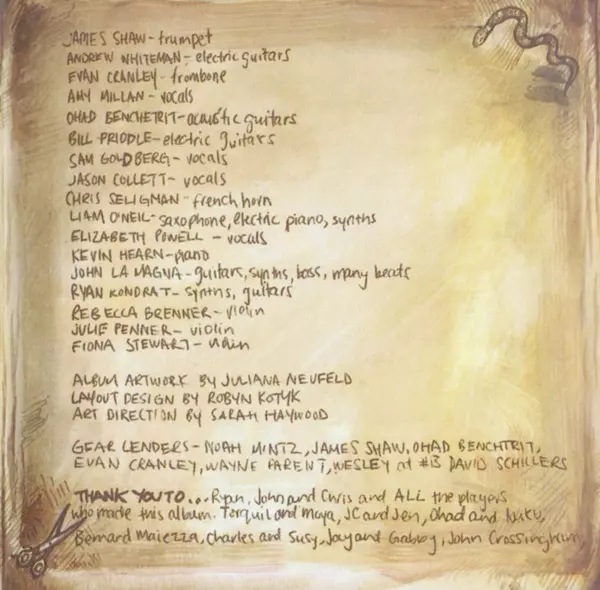 JAMES SHAW - trumpet
ANDREW WHITEMAN - electric guitars
EVAN CRANLEY - trombone
AMY MILLAN - vocals
OHAD BENCHETRIT - acoustic guitars
BILL PRIDDLE - electric guitars
SAM GOLDBERG - vocals
JASON COLLETT - vocals
CHRIS SELIGMAN - french horn
LIAM O'NEIL - saxophone, electric piano, synths
ELIZABETH POWELL - vocals
KEVIN HEARN - piano
JOHN LA MAGNA - guitars, synths, bass, many beats
RYAN KONDRAT - synths, guitars
REBECCA BRENNER - violin
JULIE PENNER - violin
FIONA STEWART - violin
ALBUM ARTWORK BY JULIANA NEUFELD
LAYOUT DESIGN BY ROBYN KOTYK
ART DIRECTION BY SARAH HAYWOOD
GEAR LENDERS - NOAH MINTZ, JAMES SHAW, OHAD BENCHTRIT,
EVAN CRANLEY, WAYNE PARENT, WESLEY at #13 DAVID SCHILLERS
THANK YOU TO... Ryan, John and Chris and ALL the players
who made this album. Torquil and Moya, JC and Jen, Ohad and
Bernard Maiezza, Charles and Susy, Jay and Gabby, John Crossingham